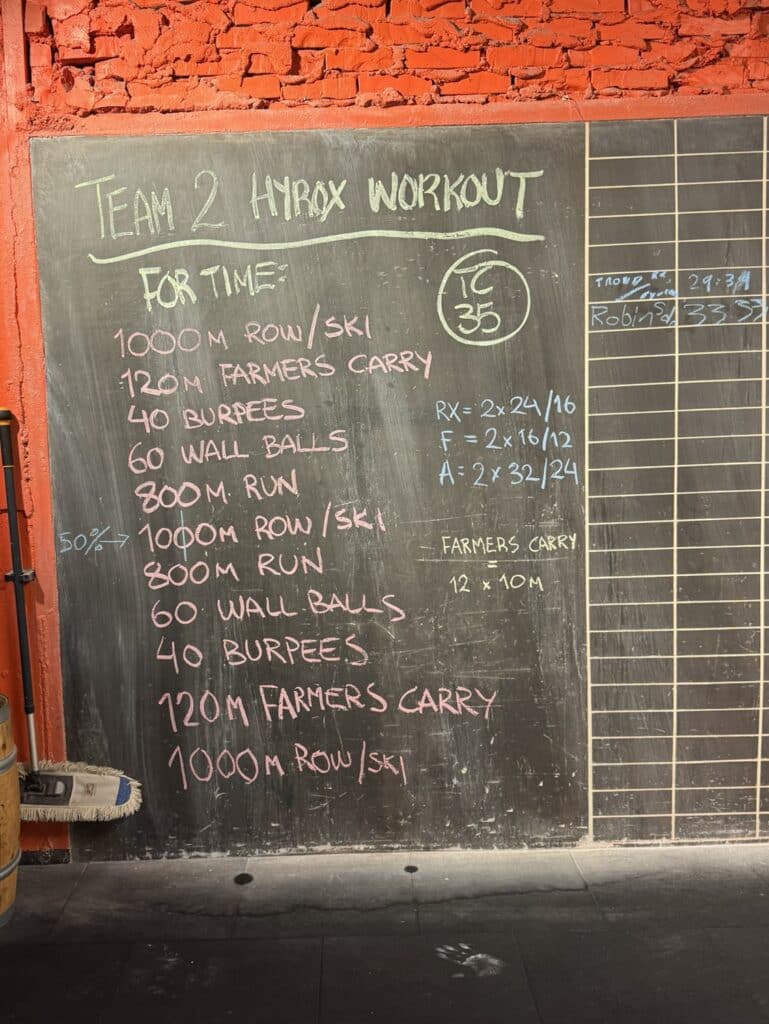 TEAM 2 HYROX WORKOUT
FOR TIME:
TC
35
1000M ROW/SKI
120M FARMERS CARRY
40 BURPEES
60 WALL BALLS
800M RUN
50% → 1000M ROW/SKI
800M RUN
60 WALL BALLS
40 BURPEES
120M FARMERS CARRY
1000M ROW/SKI
RX = 2x24/16
F = 2x16/12
A = 2x32/24
FARMERS CARRY
=
12 x 10M
TROND
29:34
Robin
33 33